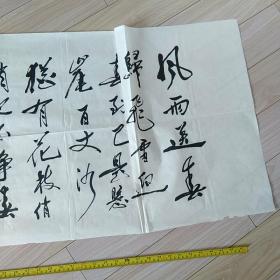 风雨送春
歸飛雪迎
春到已是懸
崖百丈冰
猶有花枝俏
俏也不爭春